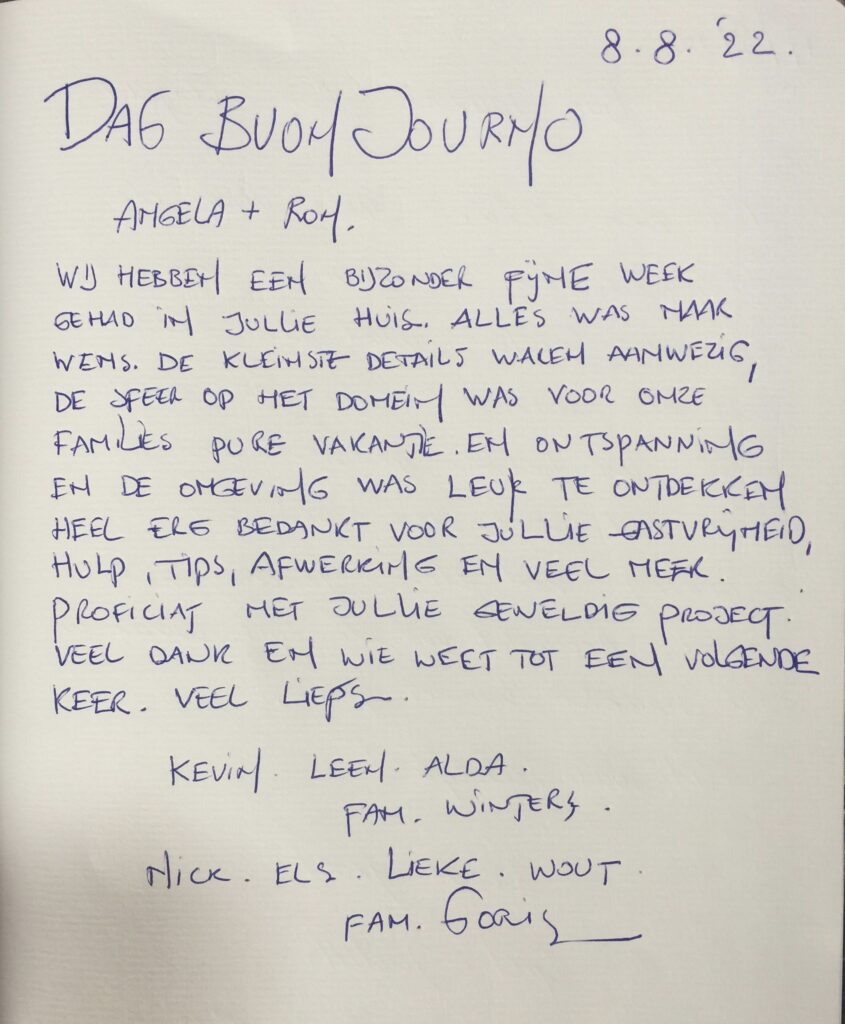 8.8.'22.
DAG BUON JOURNO
ANGELA + RON.
WIJ HEBBEN EEN BIJZONDER FIJNE WEEK
GEHAD IN JULLIE HUIS. ALLES WAS NAAR
WENS. DE KLEINSTE DETAILS WAREN AANWEZIG,
DE SFEER OP HET DOMEIN WAS VOOR ONZE
FAMILIES PURE VAKANTIE. EN ONTSPANNING
EN DE OMGEVING WAS LEUK TE ONTDEKKEN
HEEL ERG BEDANKT VOOR JULLIE GASTVRIJHEID,
HULP, TIPS, AFWERKING EN VEEL MEER.
PROFICIAT MET JULLIE GEWELDIG PROJECT.
VEEL DANK EN WIE WEET TOT EEN VOLGENDE
KEER. VEEL LIEFS.
KEVIN. LEEN. ALDA.
FAM. WINTERS.
NICK. ELS. LIEKE. WOUT.
FAM. GORIS